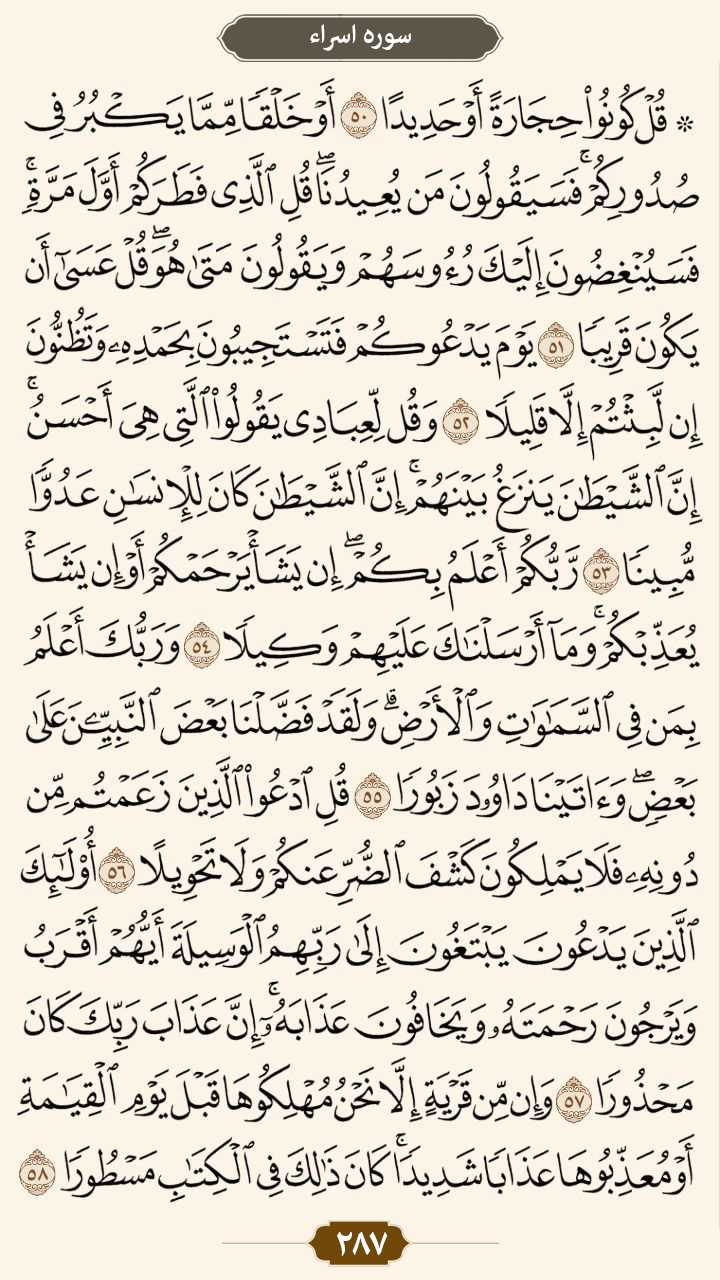 سوره اسراء
۞ قُلۡ كُونُواْ حِجَارَةً أَوۡ حَدِيدًا ٥٠ أَوۡ خَلۡقٗا مِّمَّا يَكۡبُرُ فِي
صُدُورِكُمۡۚ فَسَيَقُولُونَ مَن يُعِيدُنَاۖ قُلِ ٱلَّذِي فَطَرَكُمۡ أَوَّلَ مَرَّةٖۚ
فَسَيُنۡغِضُونَ إِلَيۡكَ رُءُوسَهُمۡ وَيَقُولُونَ مَتَىٰ هُوَۖ قُلۡ عَسَىٰٓ أَن
يَكُونَ قَرِيبٗا ٥١ يَوۡمَ يَدۡعُوكُمۡ فَتَسۡتَجِيبُونَ بِحَمۡدِهِۦ وَتَظُنُّونَ
إِن لَّبِثۡتُمۡ إِلَّا قَلِيلٗا ٥٢ وَقُل لِّعِبَادِي يَقُولُواْ ٱلَّتِي هِيَ أَحۡسَنُۚ
إِنَّ ٱلشَّيۡطَٰنَ يَنزَغُ بَيۡنَهُمۡۚ إِنَّ ٱلشَّيۡطَٰنَ كَانَ لِلۡإِنسَٰنِ عَدُوّٗا
مُّبِينٗا ٥٣ رَّبُّكُمۡ أَعۡلَمُ بِكُمۡۖ إِن يَشَأۡ يَرۡحَمۡكُمۡ أَوۡ إِن يَشَأۡ
يُعَذِّبۡكُمۡۚ وَمَآ أَرۡسَلۡنَٰكَ عَلَيۡهِمۡ وَكِيلٗا ٥٤ وَرَبُّكَ أَعۡلَمُ
بِمَن فِي ٱلسَّمَٰوَٰتِ وَٱلۡأَرۡضِۗ وَلَقَدۡ فَضَّلۡنَا بَعۡضَ ٱلنَّبِيِّـۧنَ عَلَىٰ
بَعۡضٖۖ وَءَاتَيۡنَا دَاوُۥدَ زَبُورٗا ٥٥ قُلِ ٱدۡعُواْ ٱلَّذِينَ زَعَمۡتُم مِّن
دُونِهِۦ فَلَا يَمۡلِكُونَ كَشۡفَ ٱلضُّرِّ عَنكُمۡ وَلَا تَحۡوِيلًا ٥٦ أُوْلَٰٓئِكَ
ٱلَّذِينَ يَدۡعُونَ يَبۡتَغُونَ إِلَىٰ رَبِّهِمُ ٱلۡوَسِيلَةَ أَيُّهُمۡ أَقۡرَبُ
وَيَرۡجُونَ رَحۡمَتَهُۥ وَيَخَافُونَ عَذَابَهُۥٓۚ إِنَّ عَذَابَ رَبِّكَ كَانَ
مَحۡذُورٗا ٥٧ وَإِن مِّن قَرۡيَةٍ إِلَّا نَحۡنُ مُهۡلِكُوهَا قَبۡلَ يَوۡمِ ٱلۡقِيَٰمَةِ
أَوۡ مُعَذِّبُوهَا عَذَابٗا شَدِيدٗاۚ كَانَ ذَٰلِكَ فِي ٱلۡكِتَٰبِ مَسۡطُورٗا ٥٨
٢٨٧